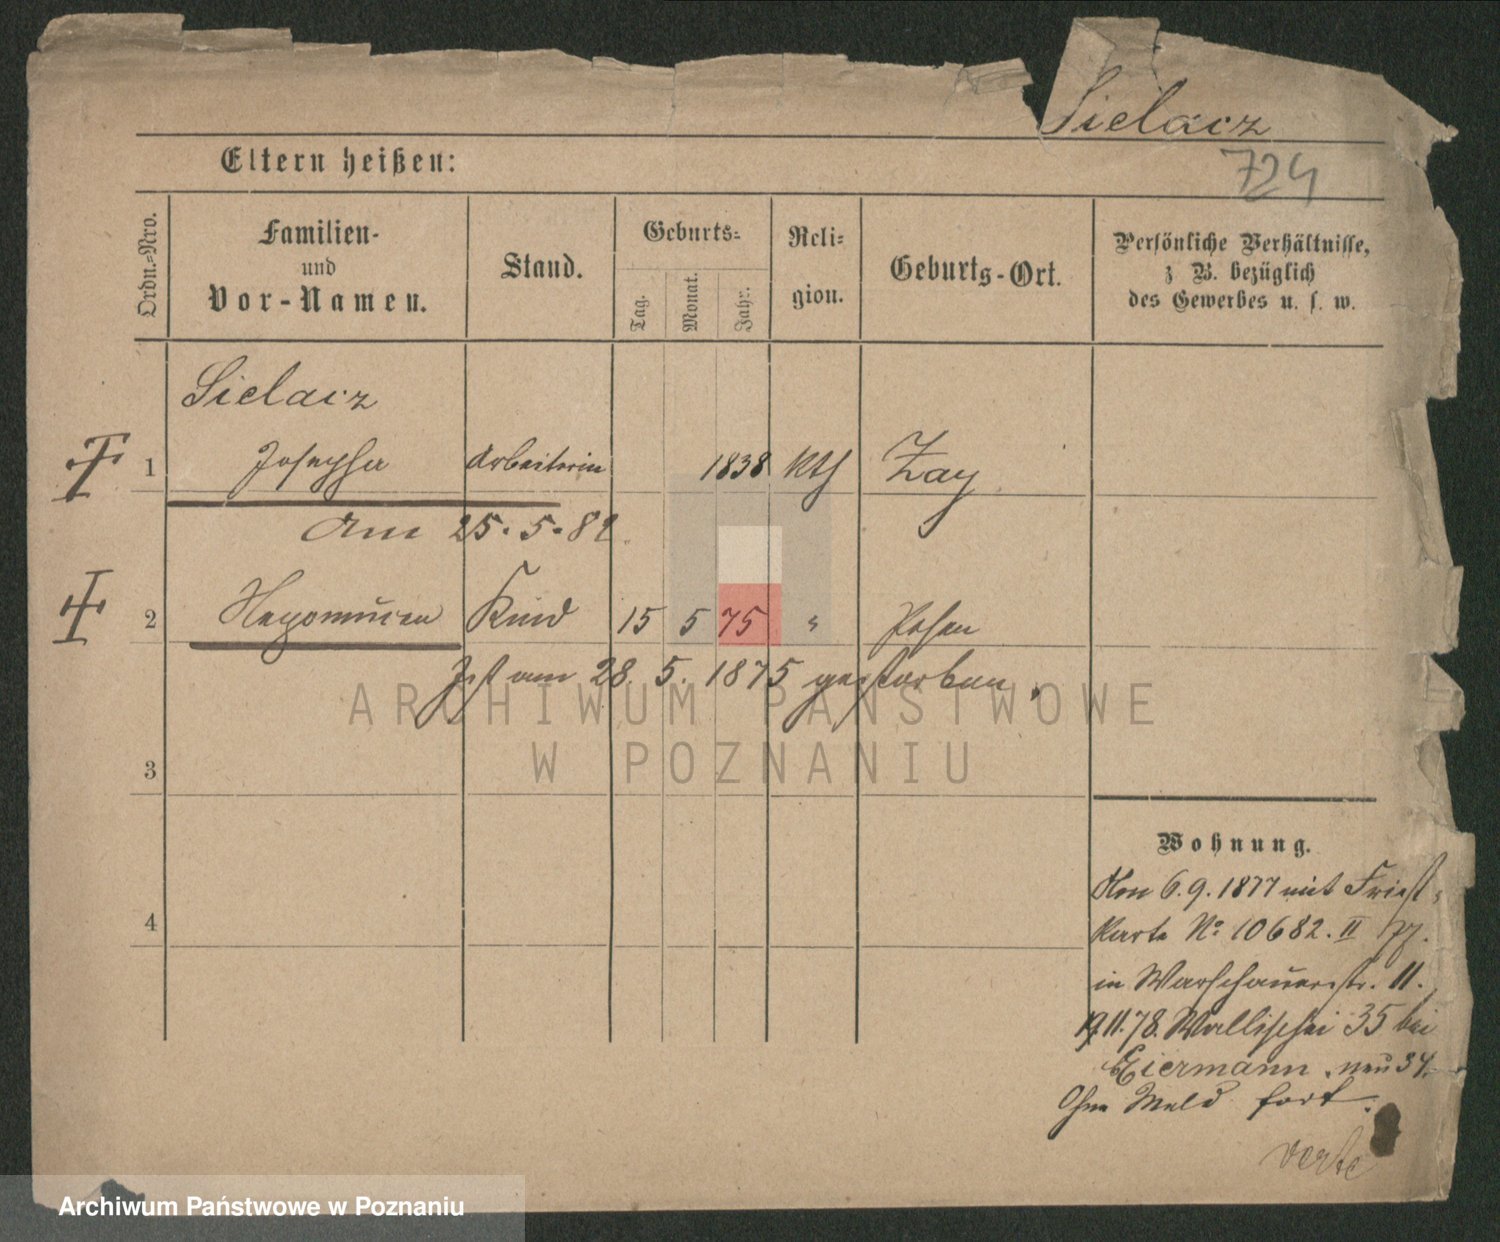 Sielacz
724
Eltern heißen:
Ordn.-Nro.
Familien-
und
Vor-Namen.
Stand.
Geburts-
Tag.
Monat.
Jahr.
Reli-
gion.
Geburts-Ort.
Persönliche Verhältnisse,
z. B. bezüglich
des Gewerbes u. s. w.
Sielacz
1 Josepha Arbeiterin 1838 Kth Zay
am 25.5.82.
2 Nepomucen Kind 15 5 75 " Posen
Ist am 28. 5. 1875 gestorben.
3
4
ARCHIWUM PAŃSTWOWE
W POZNANIU
Wohnung.
6.9.1877 mit
Karte No 10682. II
in Warschauerstr. 11.
11.78. Wallischei 35 bei
Eiermann neu 34.
Ohne Meld fort.
verte
Archiwum Państwowe w Poznaniu